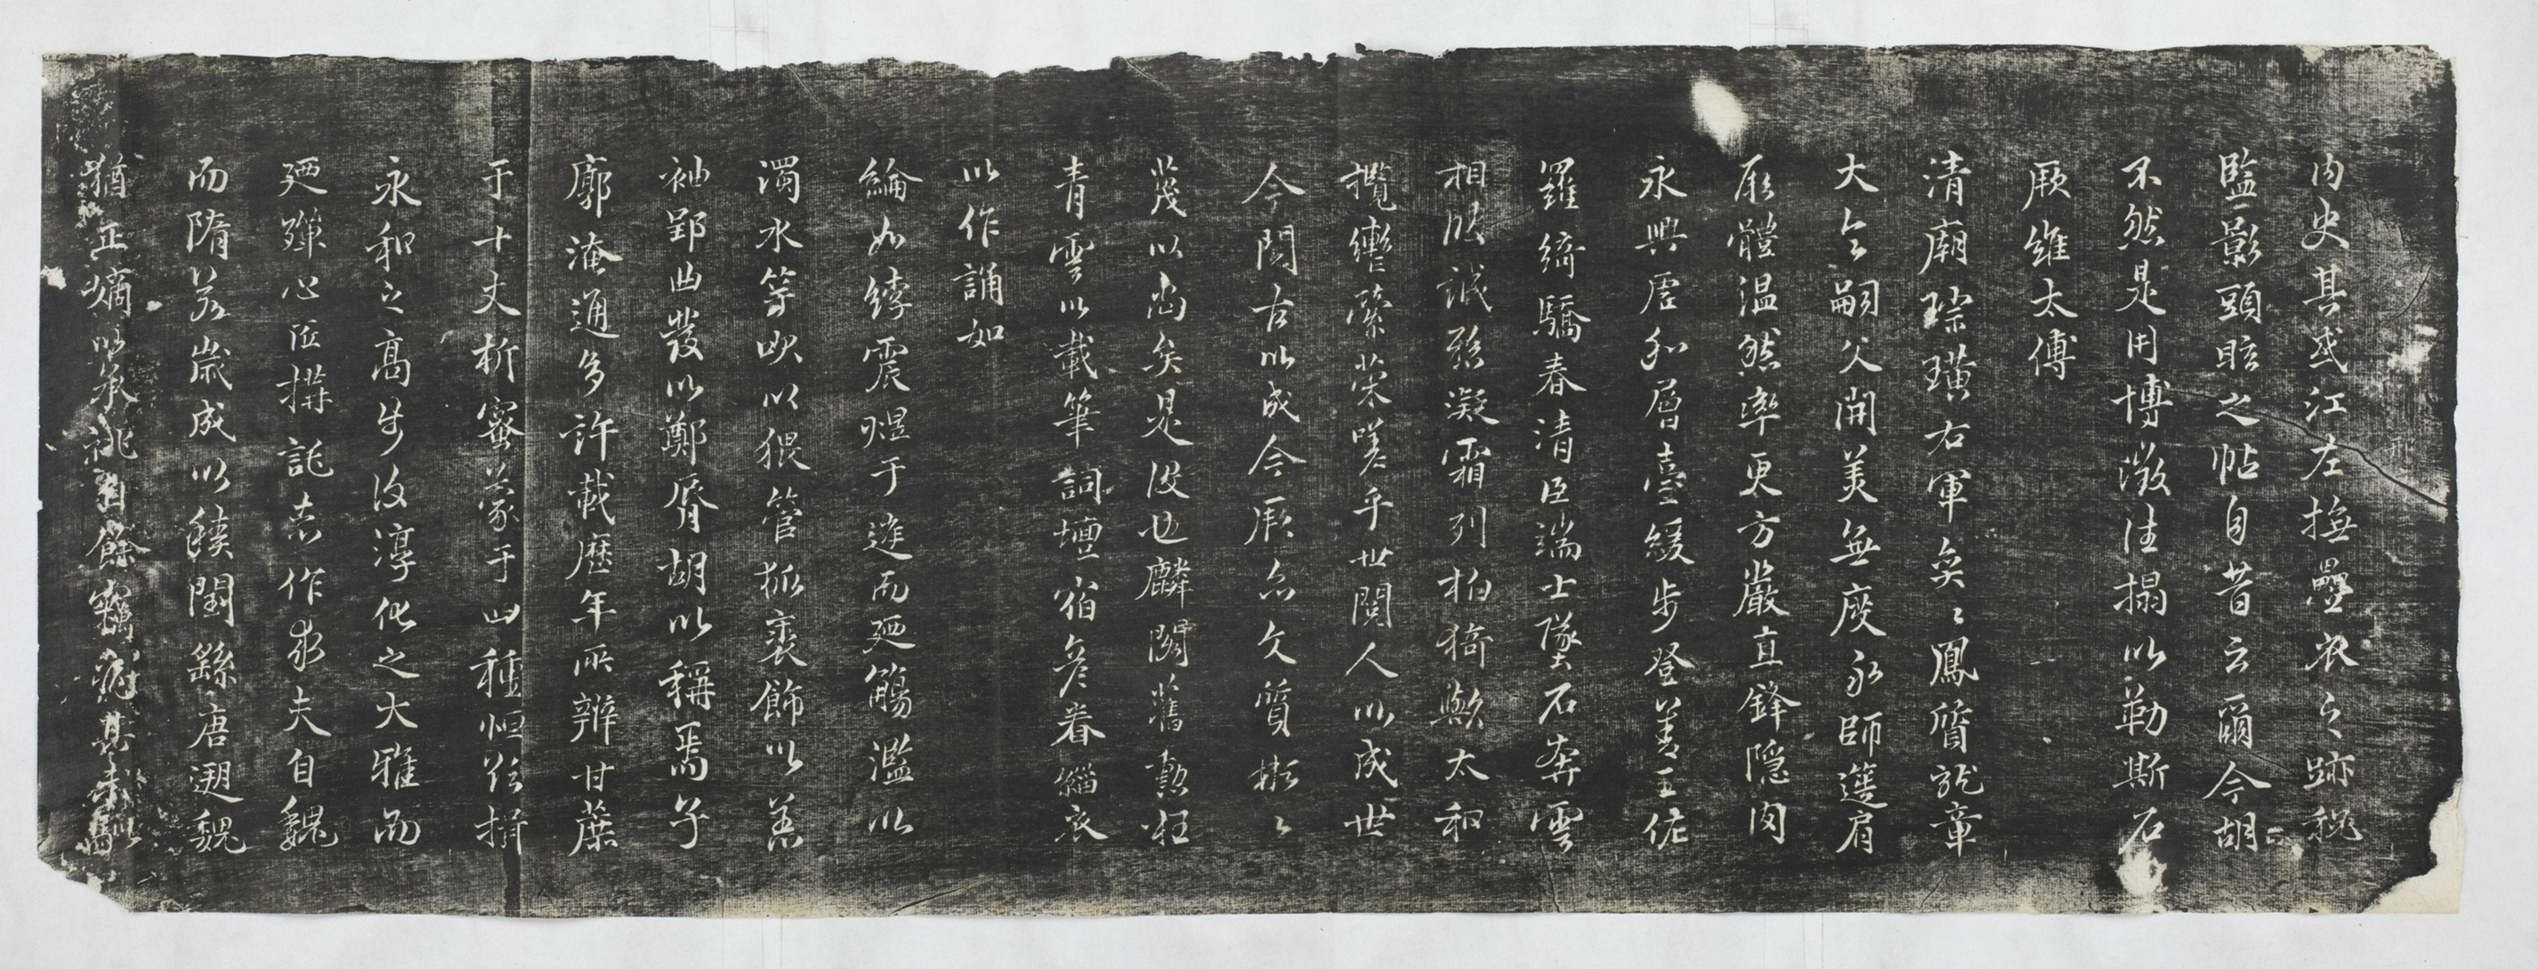 內史其或江左撫疊衣之跡魏
監影頭眩之帖自昔云爾今胡
不然是用博徵佳搨以勒斯石
厥維太傅
清廟琮璜右軍奕〻鳳質龍章
大令嗣父開美無廢永師遵肩
厥體溫然率更方嚴直鋒隱肉
永興唐和層臺緩步登善王佐
羅綺驕春清臣端士墜石奔雲
相時誠懸凝霜列柏猗歟太和
攬轡縈策嗟乎世閱人以成世
今閱古以成今厥亦文質彬〻
茂以尚矣是役也麟閣舊勳狂
青雲以載筆詞壇宿彥眷緇衣
以作誦如
綸如綍震煜于遊而廼觴濫以
濁水等吠以猥管狐裘飾以羔
袖郢曲發以鄭厲胡以稱焉子
廓淹通多許載歷年所辨甘蔗
于十丈析蜜蒙于山種恒欲揖
永和之高步汲淳化之大雅而
廼殫心匠搆託志作求夫自魏
而隋若歲成以積閏繇唐遡魏
猶正嫡以承祧自餘竊